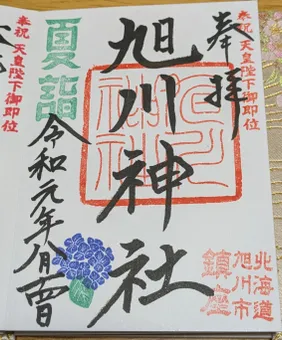 奉祝 天皇陛下御即位
奉拝
旭川神社
夏詣
令和元年八月
奉祝 天皇陛下御即位
北海道
旭川市
鎮座